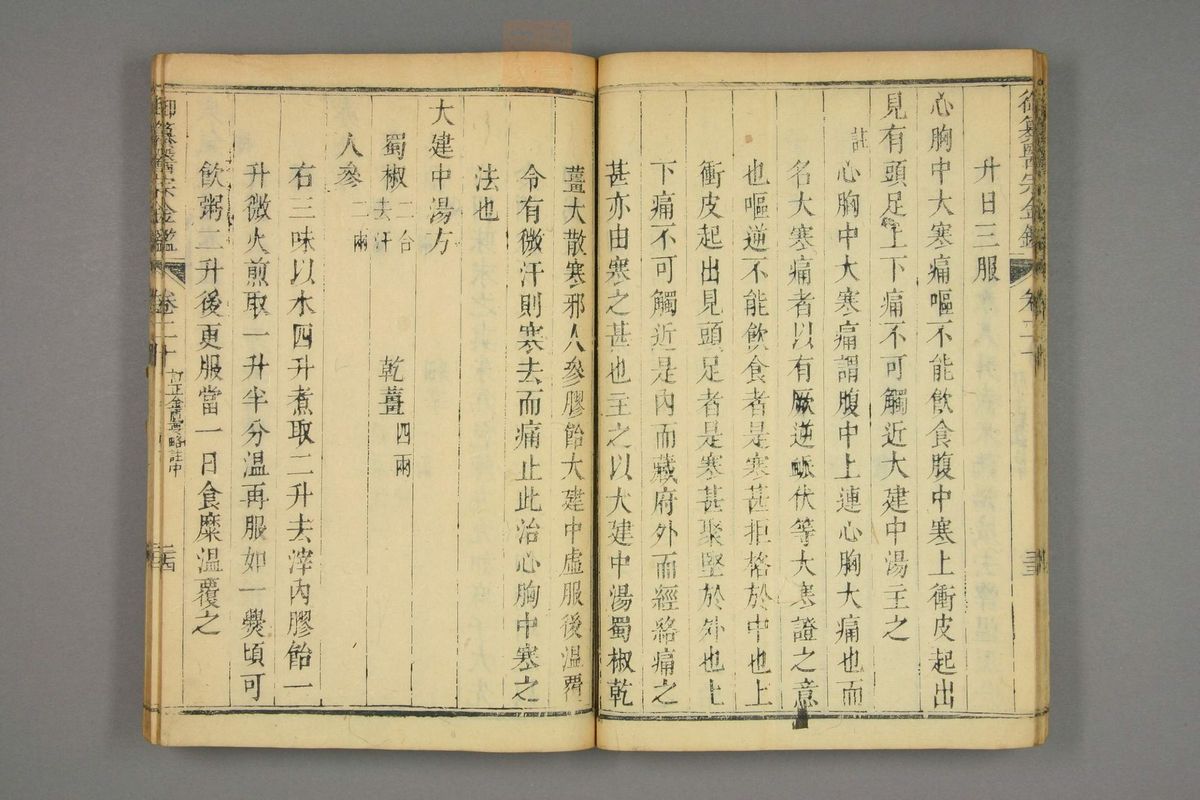 御纂醫宗金鑑 卷二十
升日三服
心胸中大寒痛嘔不能飲食腹中寒上衝皮起出
見有頭足上下痛不可觸近大建中湯主之
註心胸中大寒痛謂腹中上連心胸大痛也而
名大寒痛者以有厥逆脈伏等大寒證之意
也嘔逆不能飲食者是寒甚拒格於中也上
衝皮起出見頭足者是寒甚聚堅於外也上
下痛不可觸近是內而藏府外而經絡痛之
甚亦由寒之甚也主之以大建中湯蜀椒乾
薑大散寒邪人參膠飴大建中虛服後溫覆
令有微汗則寒去而痛止此治心胸中寒之
法也
大建中湯方
蜀椒二合去汗 乾薑四兩
人參二兩
右三味以水四升煮取二升去滓內膠飴一
升微火煎取一升半分溫再服如一㸑頃可
飲粥二升後更服當一日食糜溫覆之
御纂醫宗金鑑 卷二十 訂正金匱要略註中 二四